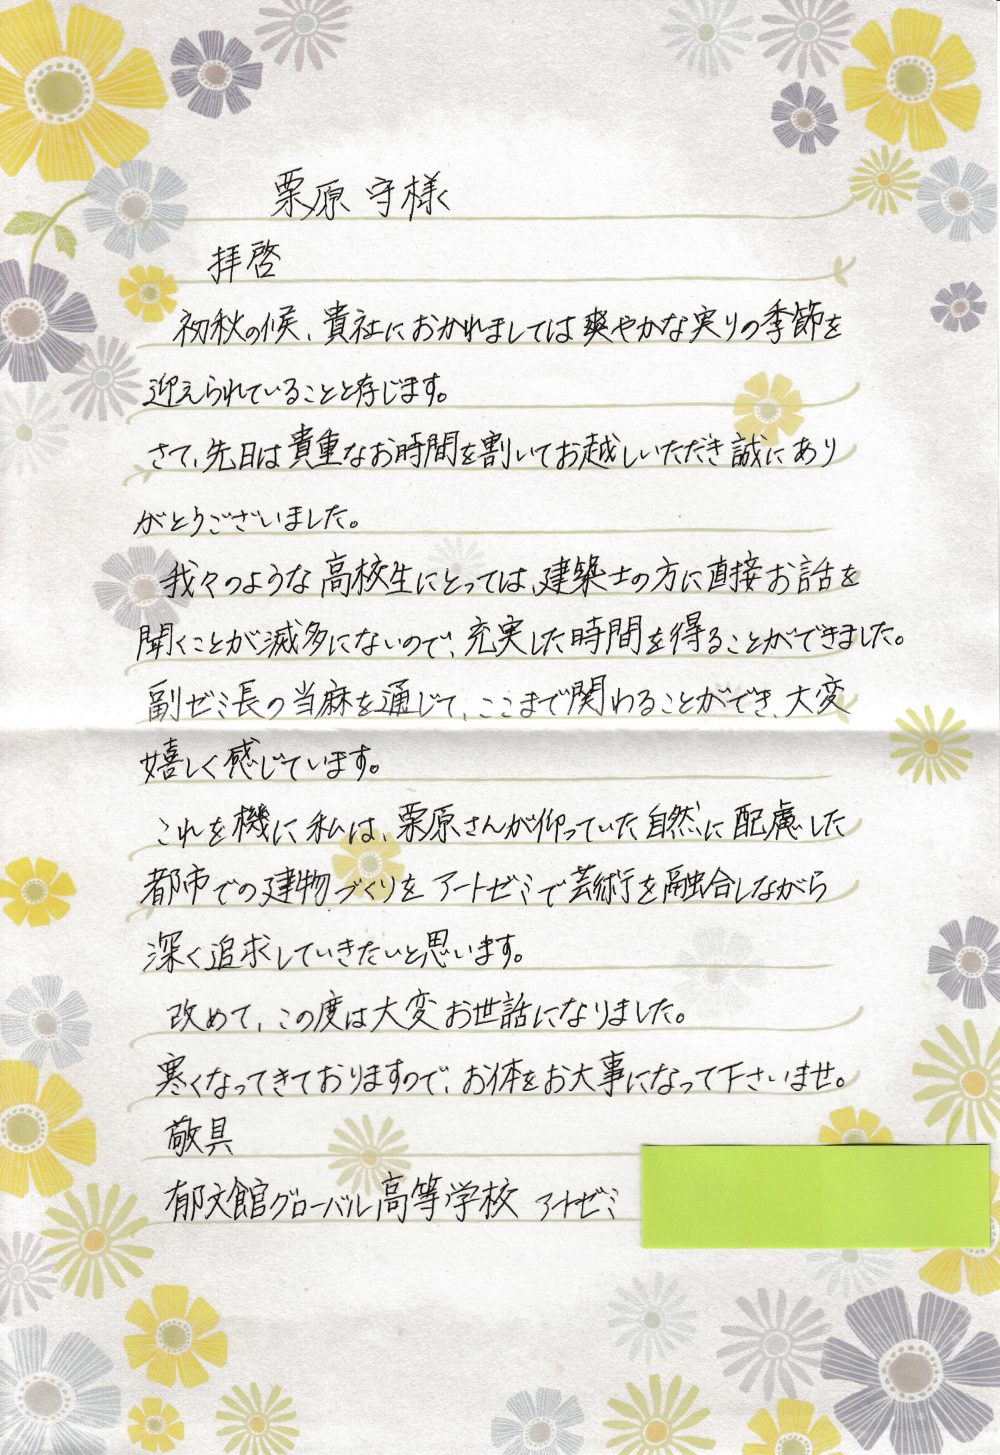 栗原 守様
拝啓
初秋の候、貴社におかれましては爽やかな実りの季節を
迎えられていることと存じます。
さて、先日は貴重なお時間を割いてお越しいただき誠にあり
がとうございました。
我々のような高校生にとっては、建築士の方に直接お話を
聞くことが滅多にないので、充実した時間を得ることができました。
副ゼミ長の当麻を通じて、ここまで関わることができ、大変
嬉しく感じています。
これを機に私は、栗原さんが仰っていた自然に配慮した
都市での建物づくりをアートゼミで芸術を融合しながら
深く追求していきたいと思います。
改めて、この度は大変お世話になりました。
寒くなってきておりますので、お体をお大事になって下さいませ。
敬具
郁文館グローバル高等学校 アートゼミ